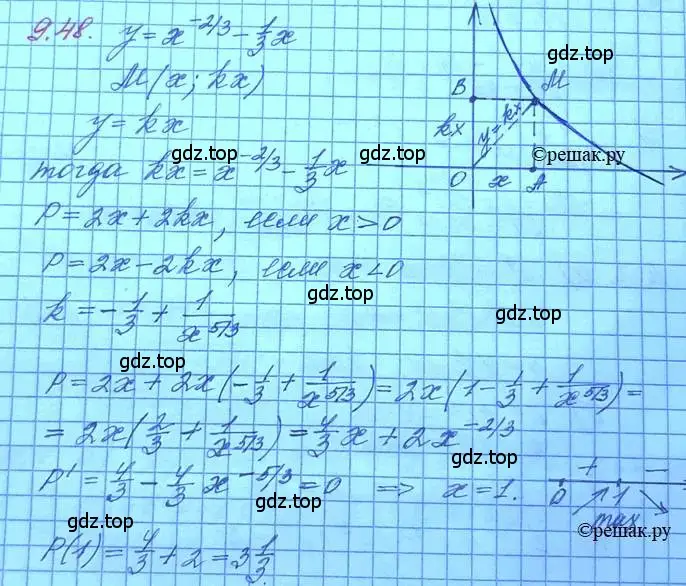 9.48. y = x^{-2/3} - \frac{1}{3}x
gdz.top
M(x; kx)
gdz.top
y = kx
B M
kx y = kx
O x A
©решак.ру
gdz.top gdz.top
тогда kx = x^{-2/3} - \frac{1}{3}x
P = 2x + 2kx, если x > 0
gdz.top
P = 2x - 2kx, если x < 0
gdz.top
k = -\frac{1}{3} + \frac{1}{x^{5/3}}
gdz.top
gdz.top
P = 2x + 2x(-\frac{1}{3} + \frac{1}{x^{5/3}}) = 2x(1 - \frac{1}{3} + \frac{1}{x^{5/3}}) =
= 2x(\frac{2}{3} + \frac{1}{x^{5/3}}) = \frac{4}{3}x + 2x^{-2/3}
gdz.top
P' = \frac{4}{3} - \frac{4}{3}x^{-5/3} = 0 => x = 1.
+ -
0 1
max
gdz.top
gdz.top
©решак.ру
P(1) = \frac{4}{3} + 2 = 3\frac{1}{3}.
gdz.top